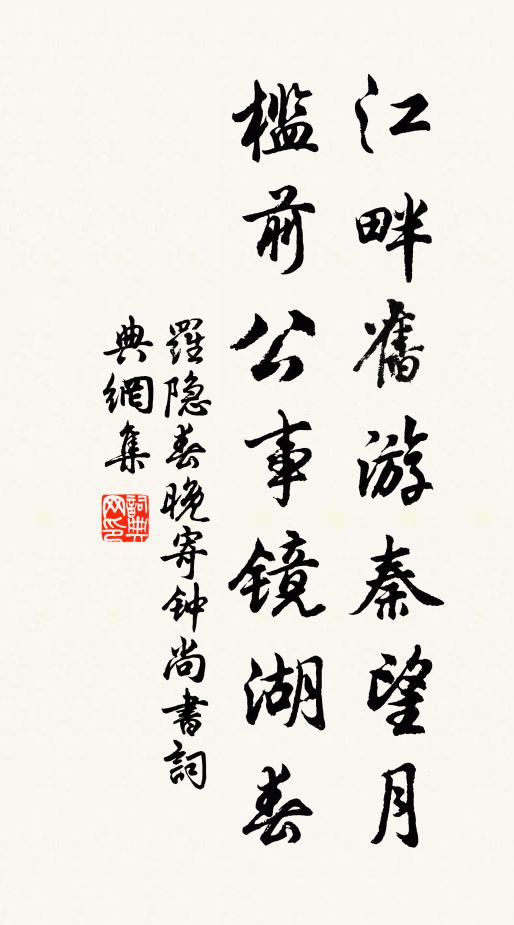 江畔舊游秦望月
檻前公事镜湖春
羅隐春晚寄钟尚書詞
典網集
詞典
网印